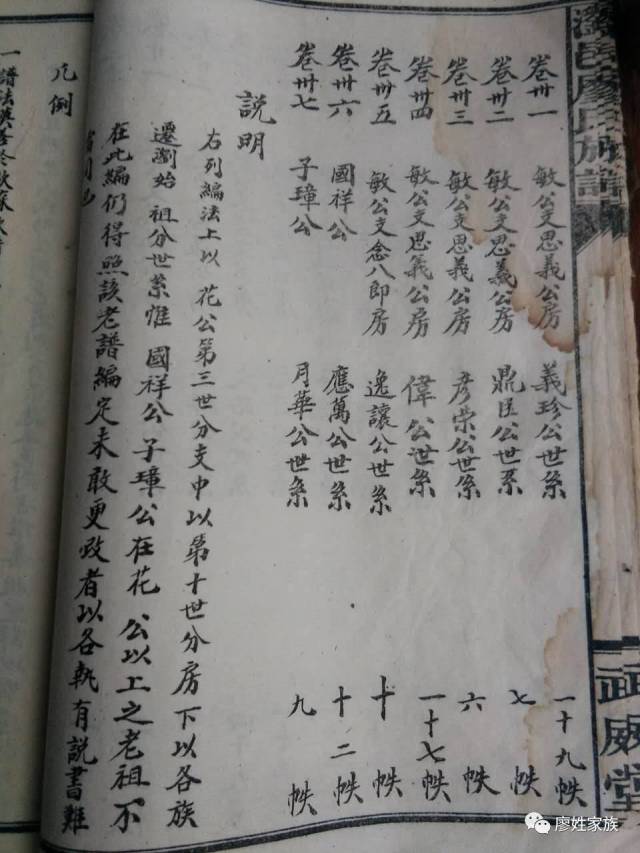 廖氏族譜
武威堂
卷卅一 敏公支思義公房 義珍公世系 一十九帙
卷卅二 敏公支思義公房 鼎臣公世系 七帙
卷卅三 敏公支思義公房 彥榮公世系 六帙
卷卅四 敏公支思義公房 偉公世系 一十七帙
卷卅五 敏公支念八郎房 逸讓公世系 十帙
卷卅六 國祥公 應萬公世系 十二帙
卷卅七 子璋公 月華公世系 九帙
說明
右列編法上以 花公第三世分支中以第十世分房下以各族
遷瀏始祖分世系惟 國祥公子璋公在花 公以上之老祖不
在此編仍得照該老譜編定未敢更改者以各執有說書難
凡例
一譜法
廖姓家族